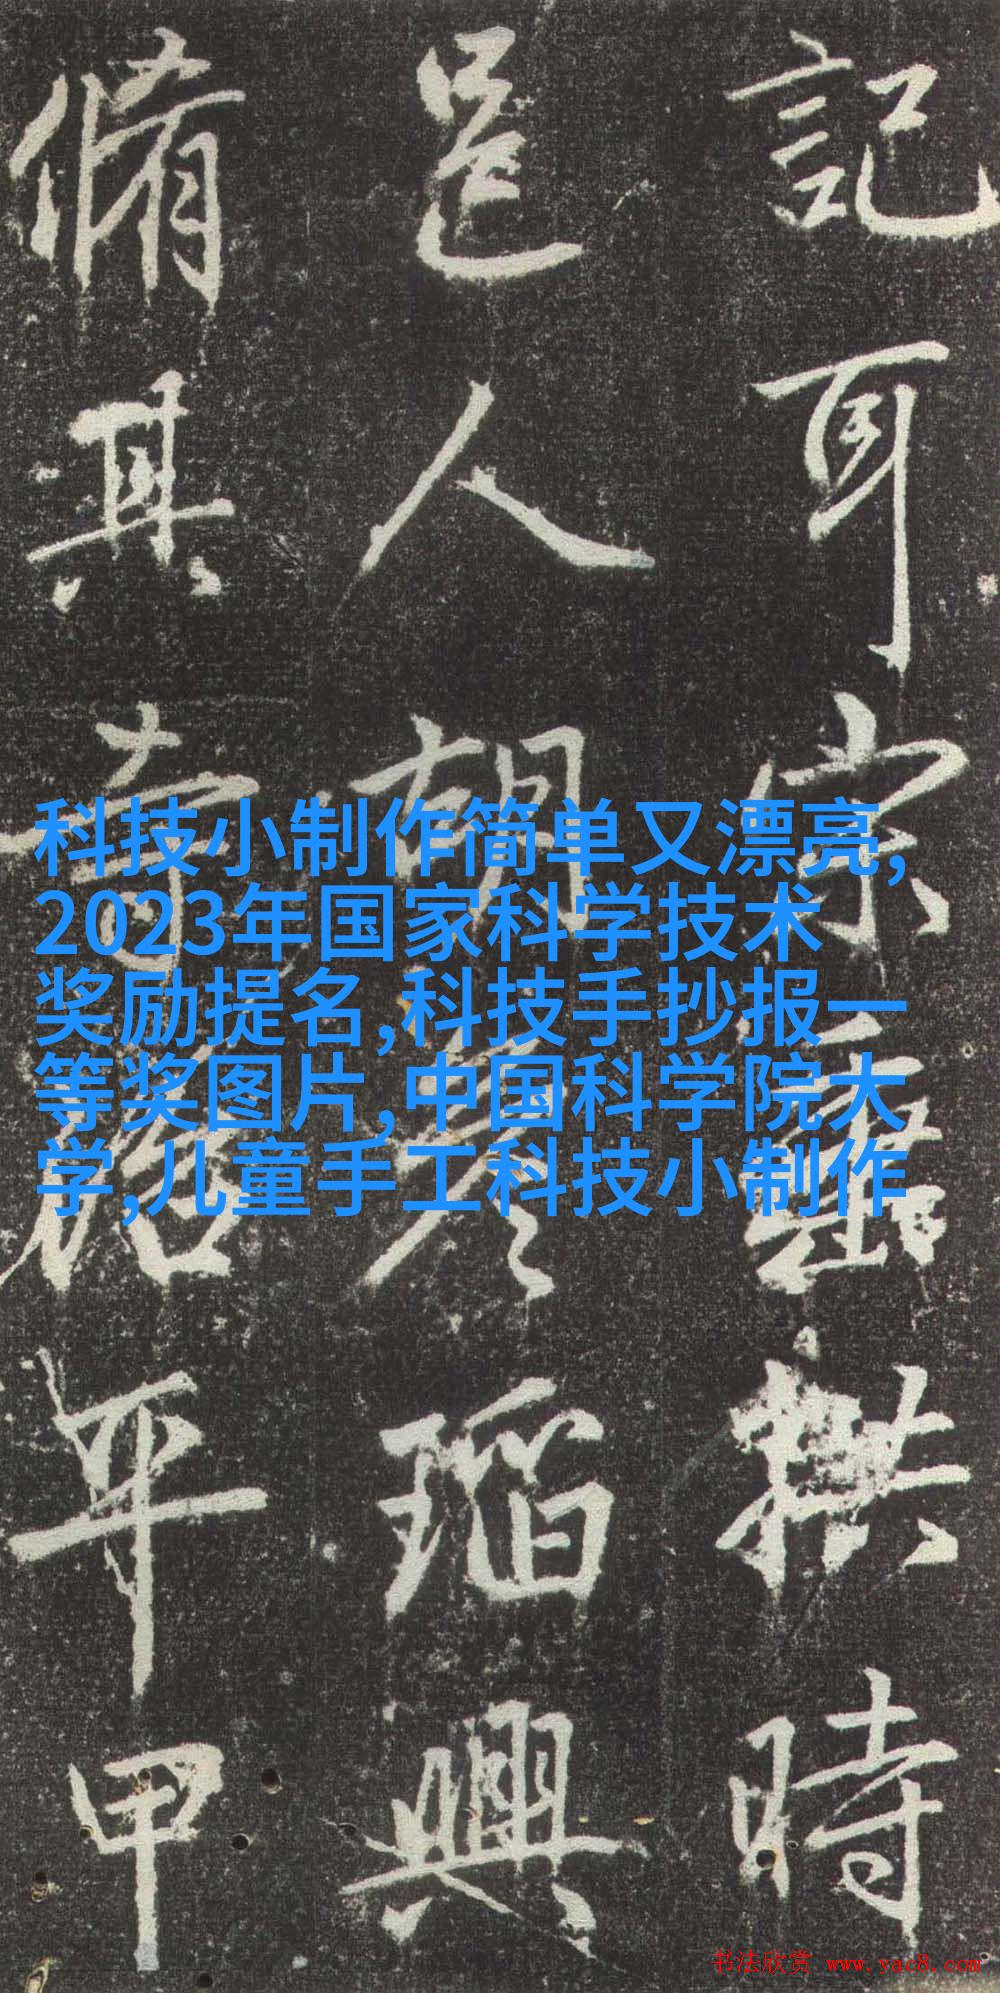 記耳宗壐拱時
邑人胡彦瑫興
脩其寺
平甲
科技小制作简单又漂亮,
2023年国家科学技术
奖励提名,科技手抄报一
等奖图片,中国科学院大
学,儿童手工科技小制作
书法欣赏 www.yac8.com